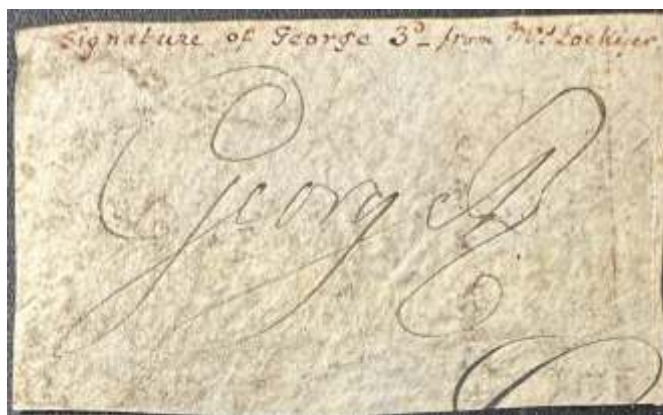 Signature of George 3d – from Mrs Lockyer
George R